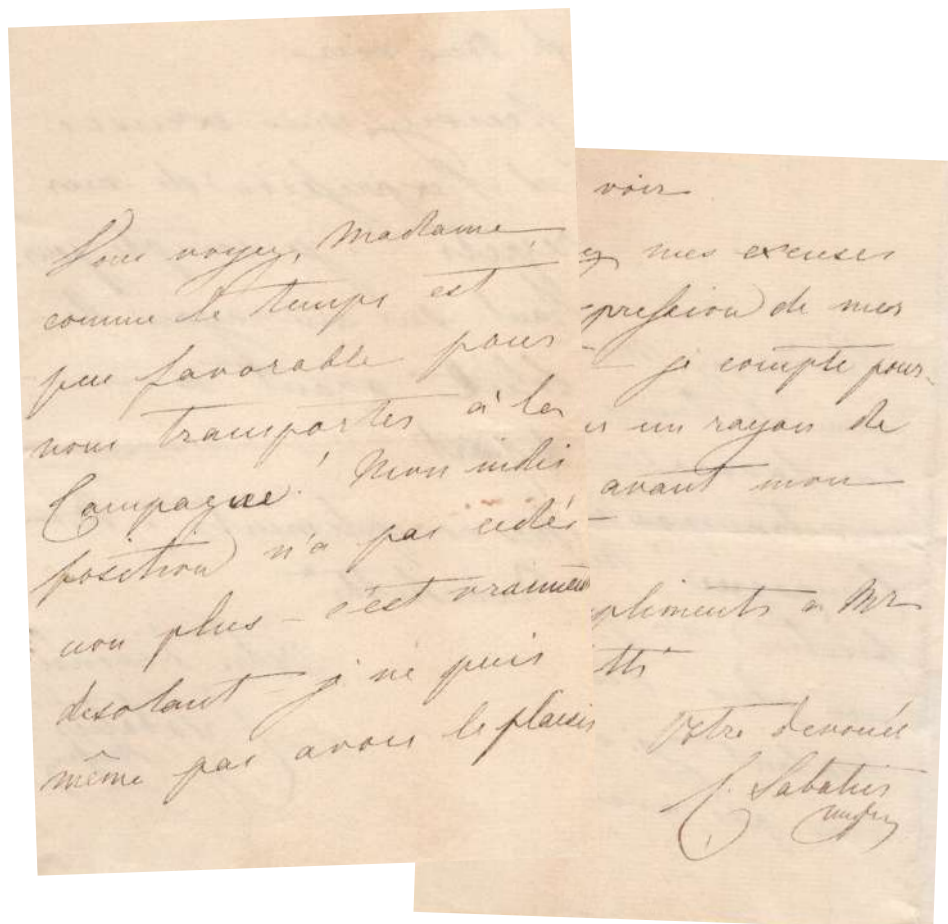 Vous voyez, Madame
comme le temps est
peu favorable pour
nous transporter à la
Campagne! Mon indis
position n'a pas cédés
non plus – c'est vraiment
désolant – je ne puis
même pas avoir le plaisir
voir
mes excuses
pression de mes
je compte pour-
un rayon de
avant mon
pliments a Mr
Votre devouée
C. Sabatier